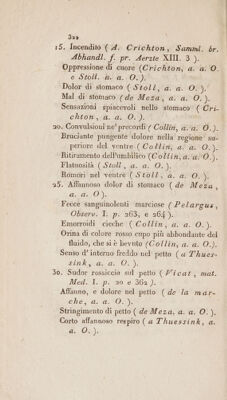 322
15. Incendito (A. Crichton, Samml. br.
Abhandl. f. pr. Aerzte XIII. 3).
Oppressione di cuore (Crichton, a. a. O.
e Stoll. a. a. O.).
Dolor di stomaco (Stoll, a. a. O.).
Mal di stomaco (de Meza, a. a. O.).
Sensazioni spiacevoli nello stomaco (Cri-
chton, a. a. O.).
20. Convulsioni ne' precordi (Collin, a. a. O.).
Bruciante pungente dolore nella regione su-
periore del ventre (Collin, a. a. O.).
Ritiramento dell'umbilico (Collin, a. a. O.).
Flatuosità (Stoll, a. a. O.).
Romori nel ventre (Stoll, a. a. O.).
25. Affannoso dolor di stomaco (de Meza,
a. a. O.)
Fecce sanguinolenti marciose (Pelargus,
Observ. I. p. 263, e 264).
Emorroidi cieche (Collin, a. a. O.).
Orina di colore rosso cupo più abbondante del
fluido, che si è bevuto (Collin, a. a. O.).
Senso d'interno freddo nel petto (a Thues-
sink, a. a. O.).
30. Sudor rossiccio sul petto (Vicat, mat.
Med. I. p. 20 e 362).
Affanno, e dolore nel petto (de la mar-
che, a. a. O.).
Stringimento di petto (de Meza, a. a. O.).
Corto affannoso respiro (a Thuessink, a.
a. O.).